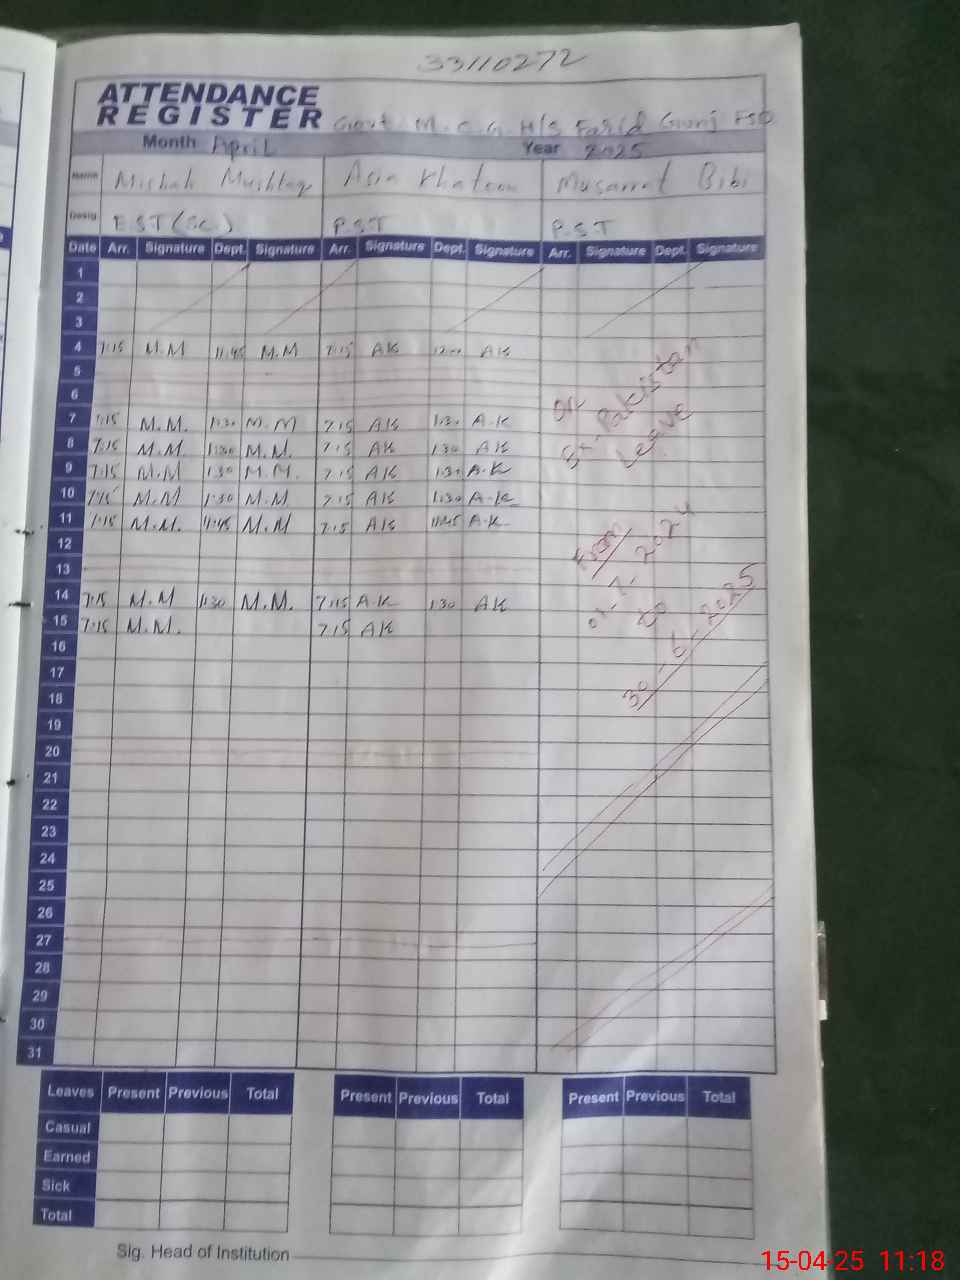 33110272
ATTENDANCE
REGISTER Govt. M.C.G. H/S Farid Gunj FSD
Month April Year 2025
Name Misbah Mushtaq Asia Khatoon Musarrat Bibi
Desig. E.S.T (SC.) P.S.T P.S.T
Date Arr. Signature Dept. Signature Arr. Signature Dept. Signature Arr. Signature Dept. Signature
1
2
3
4 7:15 M.M 11:45 M.M 7:15 AK 12:00 AK
5
6
7 7:15 M.M. 1:30 M.M 7:15 AK 1:30 A.K
8 7:15 M.M. 1:30 M.M. 7:15 AK 1:30 AK
9 7:15 M.M 1:30 M.M. 7:15 AK 1:30 A.K
10 7:15 M.M 1:30 M.M 7:15 AK 1:30 A.K
11 7:15 M.M. 11:45 M.M 7:15 AK 11:45 A.K
12
13
14 7:15 M.M 1:30 M.M. 7:15 A.K 1:30 AK
15 7:15 M.M. 7:15 AK
16
17
18
19
20
21
22
23
24
25
26
27
28
29
30
31
On
Ex-Pakistan
Leave
From
01-7-2024
to
30-6-2025
Leaves Present Previous Total Present Previous Total Present Previous Total
Casual
Earned
Sick
Total
Sig. Head of Institution
15-04-25 11:18